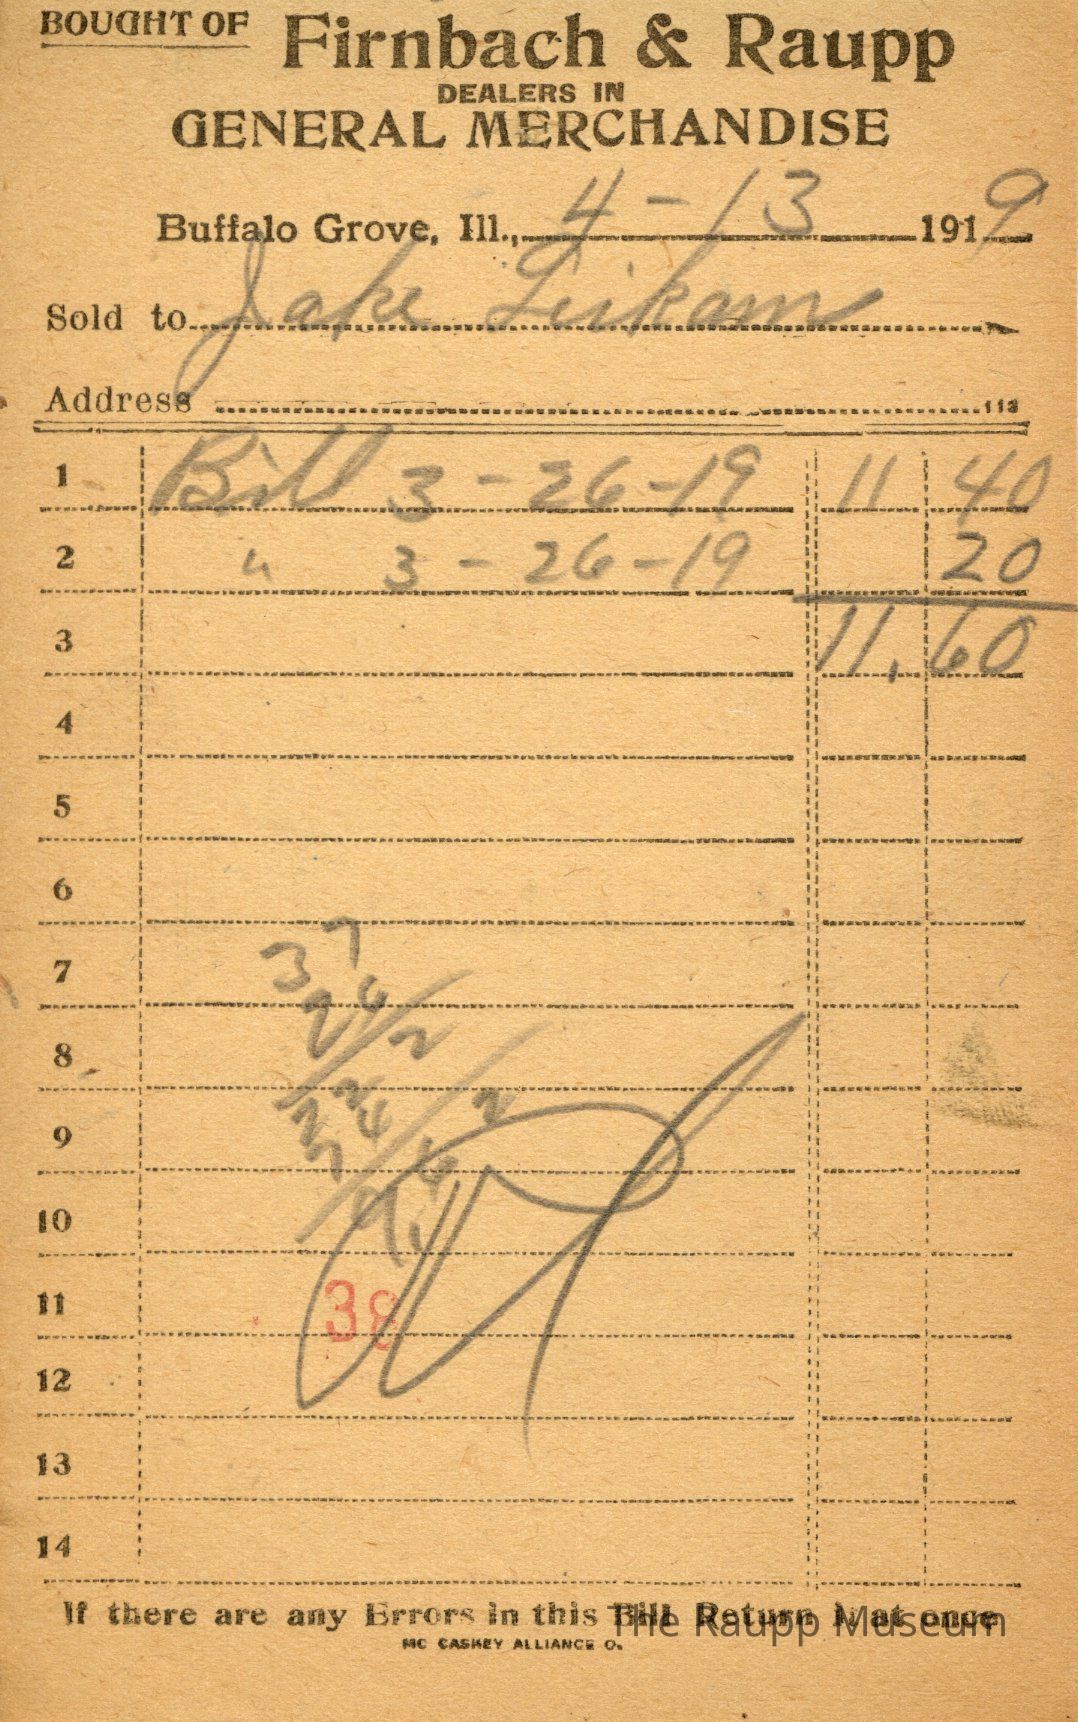 BOUGHT OF Firnbach & Raupp
DEALERS IN
GENERAL MERCHANDISE
Buffalo Grove, Ill., 4-13 1919
Sold to Jake Leikam
Address 113
1 Bill 3-26-19 11 40
2 " 3-26-19 20
3 11.60
4
5
6
7
8
9
10
11 38
12
13
14
If there are any Errors in this Bill Return it at once
The Raupp Museum
MC CASKEY ALLIANCE O.